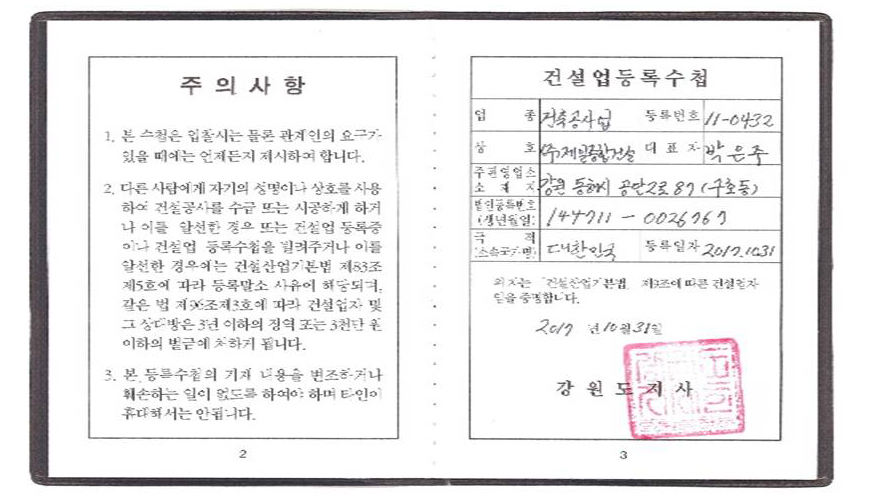 주 의 사 항
1. 본 수첩은 입찰시는 물론 관계인의 요구가
있을 때에는 언제든지 제시하여야 합니다.
2. 다른 사람에게 자기의 성명이나 상호를 사용
하여 건설공사를 수급 또는 시공하게 하거
나 이를 알선한 경우 또는 건설업 등록증
이나 건설업 등록수첩을 빌려주거나 이를
알선한 경우에는 건설산업기본법 제83조
제5호에 따라 등록말소 사유에 해당되며,
같은 법 제96조제3호에 따라 건설업자 및
그 상대방은 3년 이하의 징역 또는 3천만 원
이하의 벌금에 처하게 됩니다.
3. 본 등록수첩의 기재 내용을 변조하거나
훼손하는 일이 없도록 하여야 하며 타인이
휴대해서는 안됩니다.
2
건설업등록수첩
업 종 건축공사업 등록번호 11-0432
상 호 (주)제일종합건설 대 표 자 박은주
주된영업소
소 재 지 강원 동해시 공단2로 87 (구호동)
법인등록번호
(생년월일) 144711 - 0026767
국 적
(소속국가명) 대한민국 등록일자 2017.10.31
위 자는 「건설산업기본법」 제9조에 따른 건설업자
임을 증명합니다.
2017 년 10 월 31 일
강 원 도 지 사
3